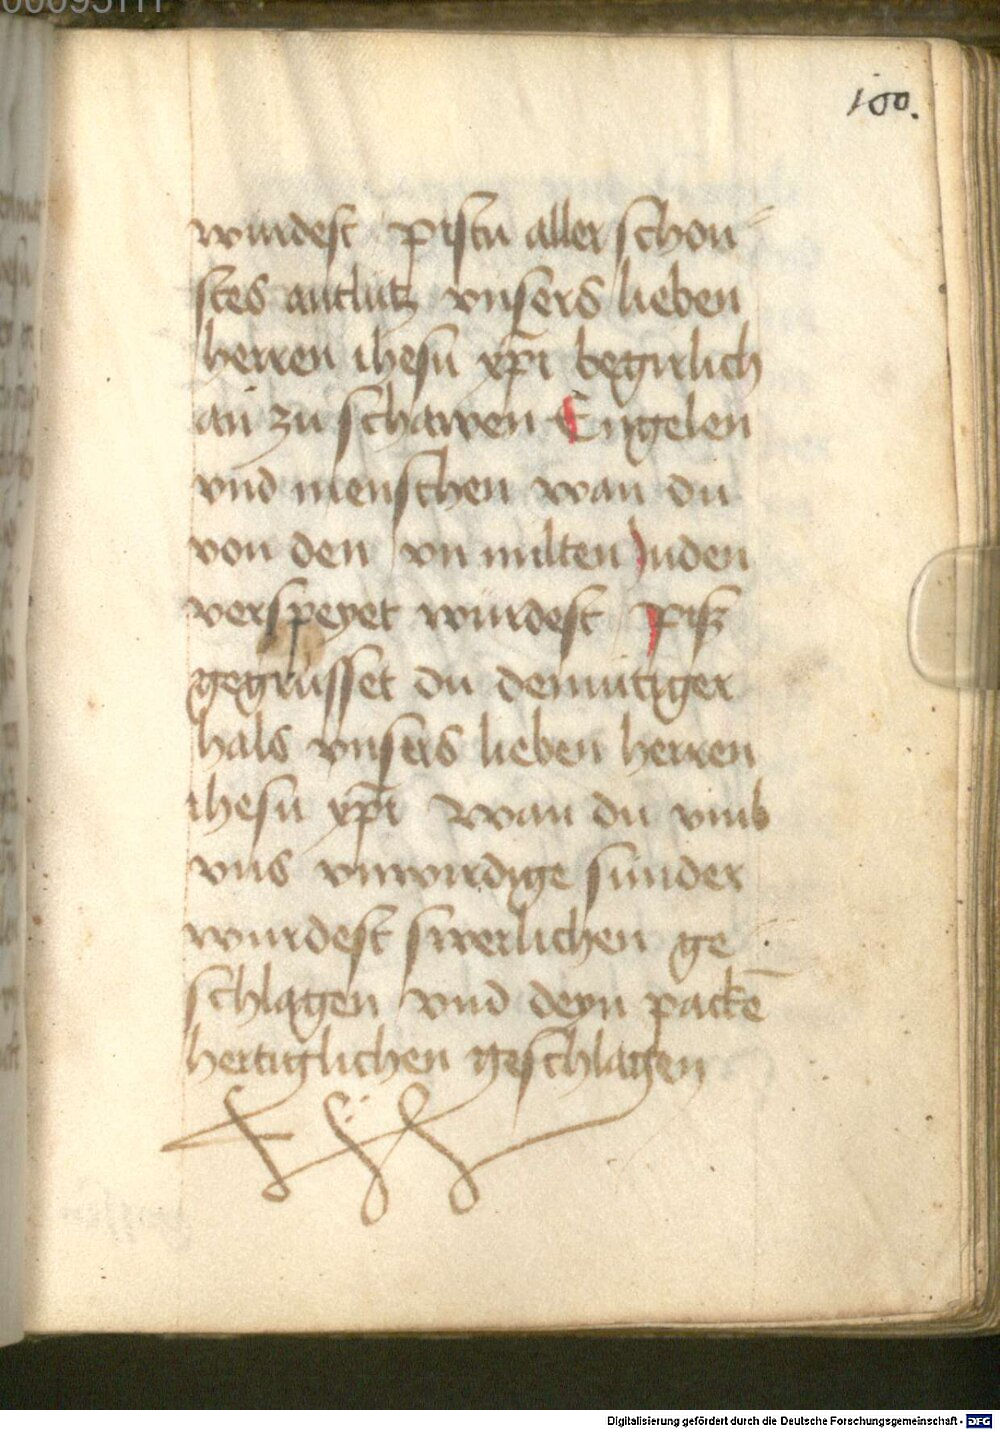 100.
wurdest pistu aller schon
stes antlutz vnsers lieben
herren ihesu xpi begirlich
an zu schawen Engelen
vnd menschen wan du
von den vn milten Juden
verspeyet wurdest Pisz
gegrüsset du demütiger
hals vnsers lieben herren
ihesu xpi Wan du vmb
vns vnwirdige sunder
wurdest swerlichen ge
schlagen vnd deyn packē
hertiglichen geschlagen
Digitalisierung gefördert durch die Deutsche Forschungsgemeinschaft - DFG